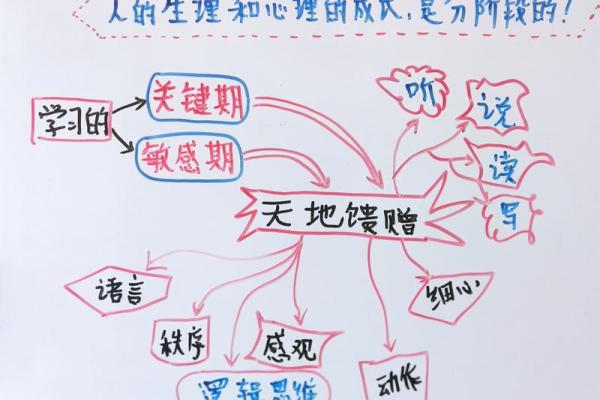 人的生理和心理的成长,是分阶段的!
关键期
学习的
敏感期
听
说
读
写
天地馈赠
语言
秩序
感观
逻辑思维
动作
细心